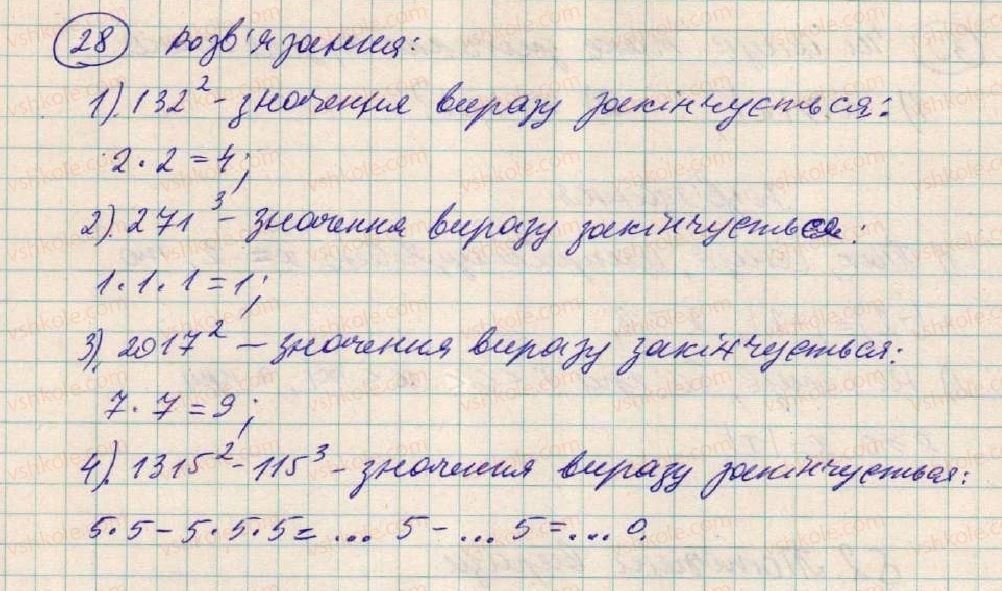 28 Розв'язання:
1). 132² - значення виразу закінчується:
2 · 2 = 4;
2). 271³ - значення виразу закінчується:
1 · 1 · 1 = 1;
3). 2017² – значення виразу закінчується:
7 · 7 = 9;
4). 1315² - 115³ - значення виразу закінчується:
5 · 5 – 5 · 5 · 5 = ... 5 – ... 5 = ... 0.